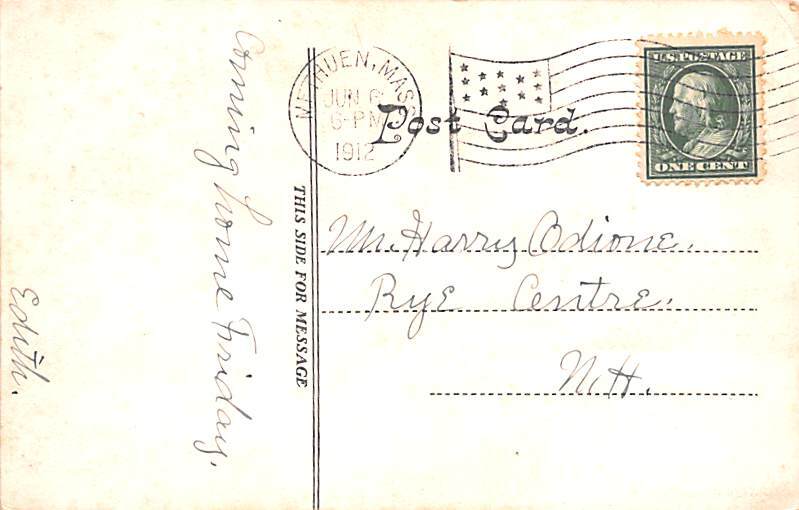 Coming home Friday.
Edith.
THIS SIDE FOR MESSAGE
METHUEN, MASS.
JUN 6
6-PM
1912
Post Card.
U.S. POSTAGE
ONE CENT
Mr. Harry Odione.
Rye Centre.
N.H.